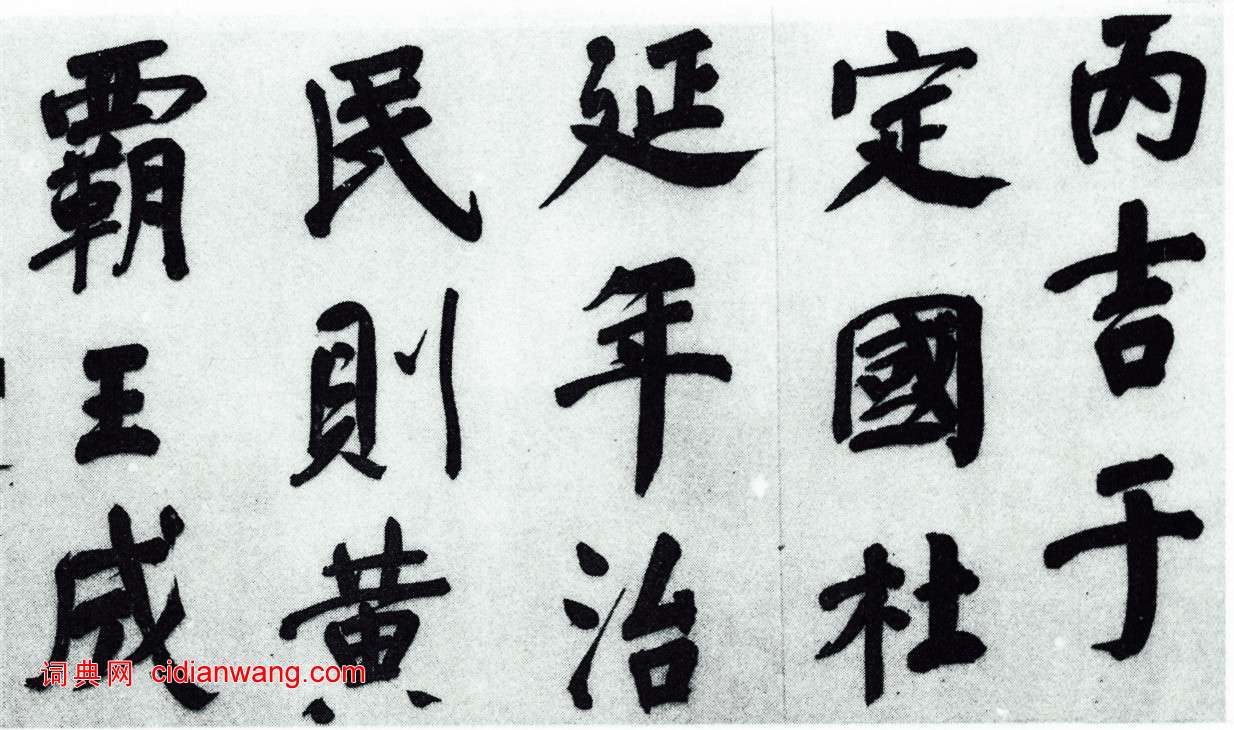 丙吉于
定國杜
延年治
民則黄
霸王成
词典网 cidianwang.com